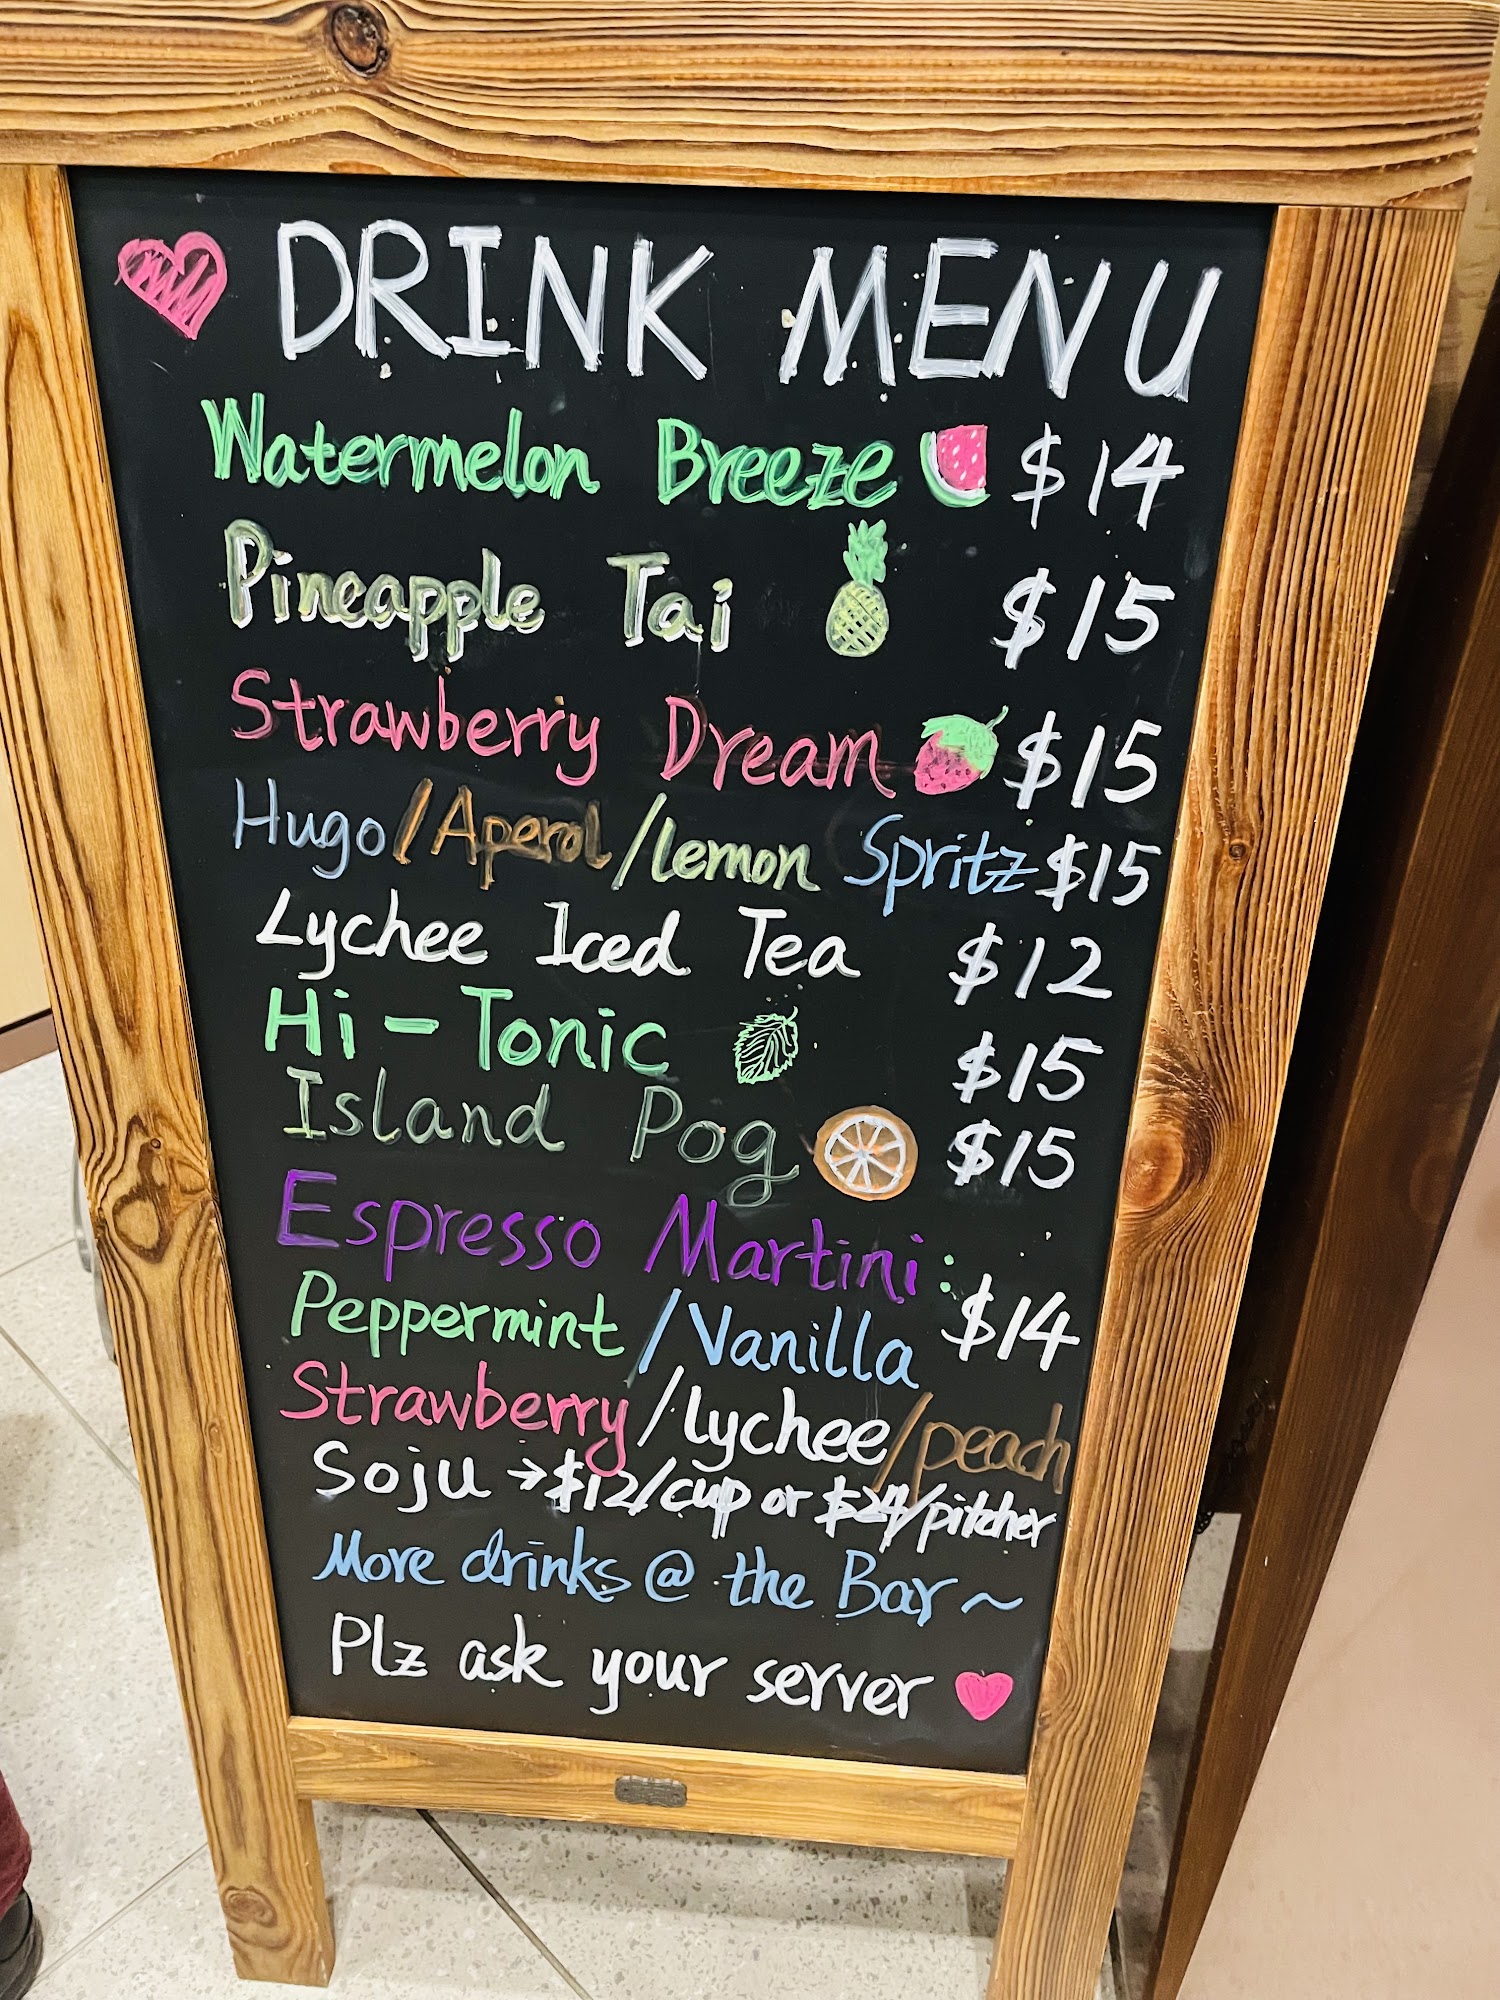 DRINK MENU
Watermelon Breeze $14
Pineapple Tai $15
Strawberry Dream $15
Hugo/Aperol/lemon Spritz $15
Lychee Iced Tea $12
Hi-Tonic $15
Island Pog $15
Espresso Martini:
Peppermint/Vanilla $14
Strawberry/lychee/peach
Soju → $12/cup or $24/pitcher
More drinks @ the Bar~
Plz ask your server